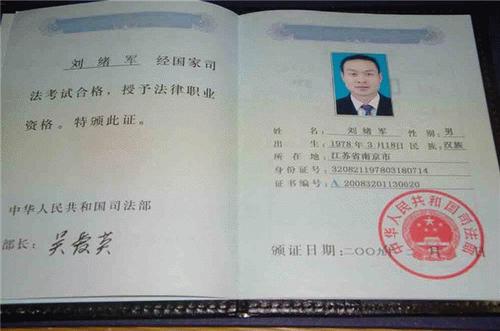 刘绪军 经国家司
法考试合格，授予法律职业
资格。特颁此证。
中华人民共和国司法部
部长：吴爱英
姓名 刘绪军 性别：男
出生：1978年3月18日 民族：汉族
所在地：江苏省南京市
身份证号：320821197803180714
证书编号：A 20083201130620
中华人民共和国司法部
颁证日期：二〇〇九年 月 日